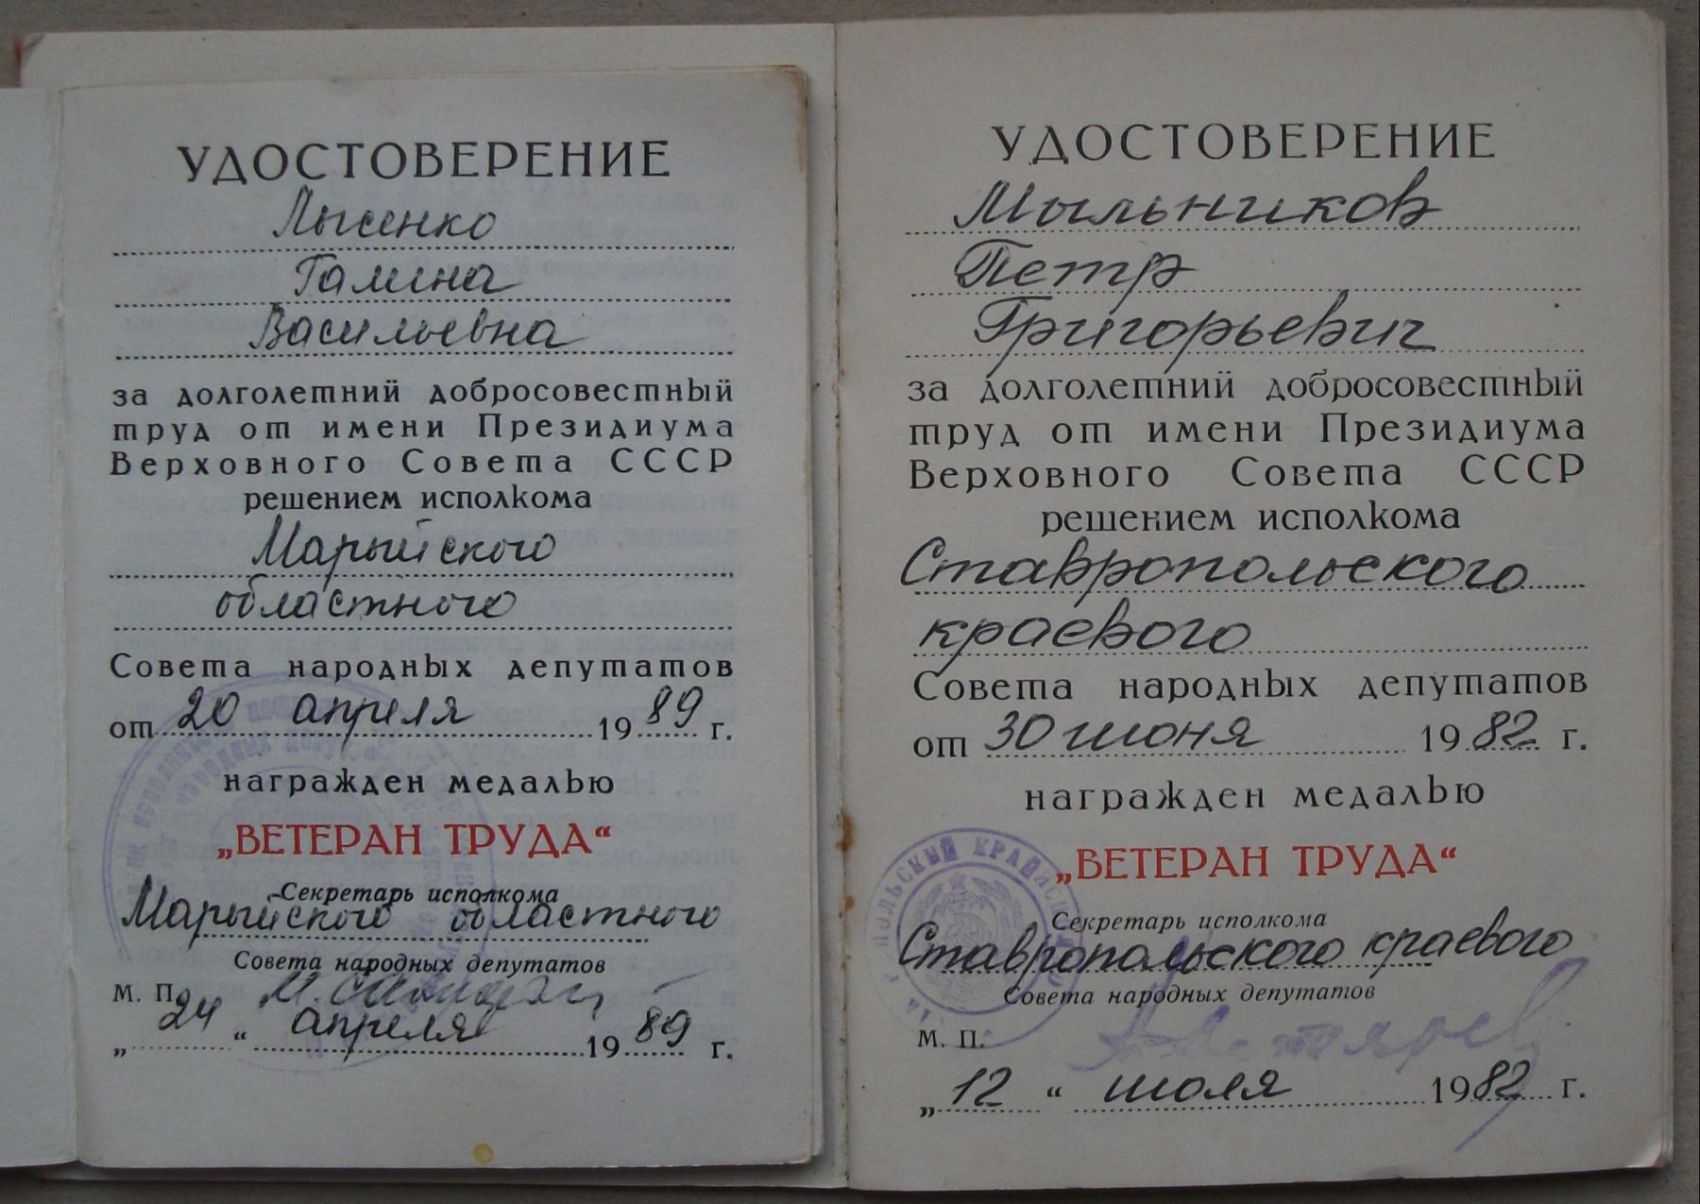 УДОСТОВЕРЕНИЕ
Лысенко
Галина
Васильевна
за долголетний добросовестный
труд от имени Президиума
Верховного Совета СССР
решением исполкома
Марыйского
областного
Совета народных депутатов
от 20 апреля 1989 г.
награжден медалью
„ВЕТЕРАН ТРУДА“
Секретарь исполкома
Марыйского областного
Совета народных депутатов
М. П.
„24“ апреля 1989 г.
УДОСТОВЕРЕНИЕ
Мыльников
Петр
Григорьевич
за долголетний добросовестный
труд от имени Президиума
Верховного Совета СССР
решением исполкома
Ставропольского
краевого
Совета народных депутатов
от 30 июня 1982 г.
награжден медалью
„ВЕТЕРАН ТРУДА“
Секретарь исполкома
Ставропольского краевого
Совета народных депутатов
М. П.
„12“ июля 1982 г.